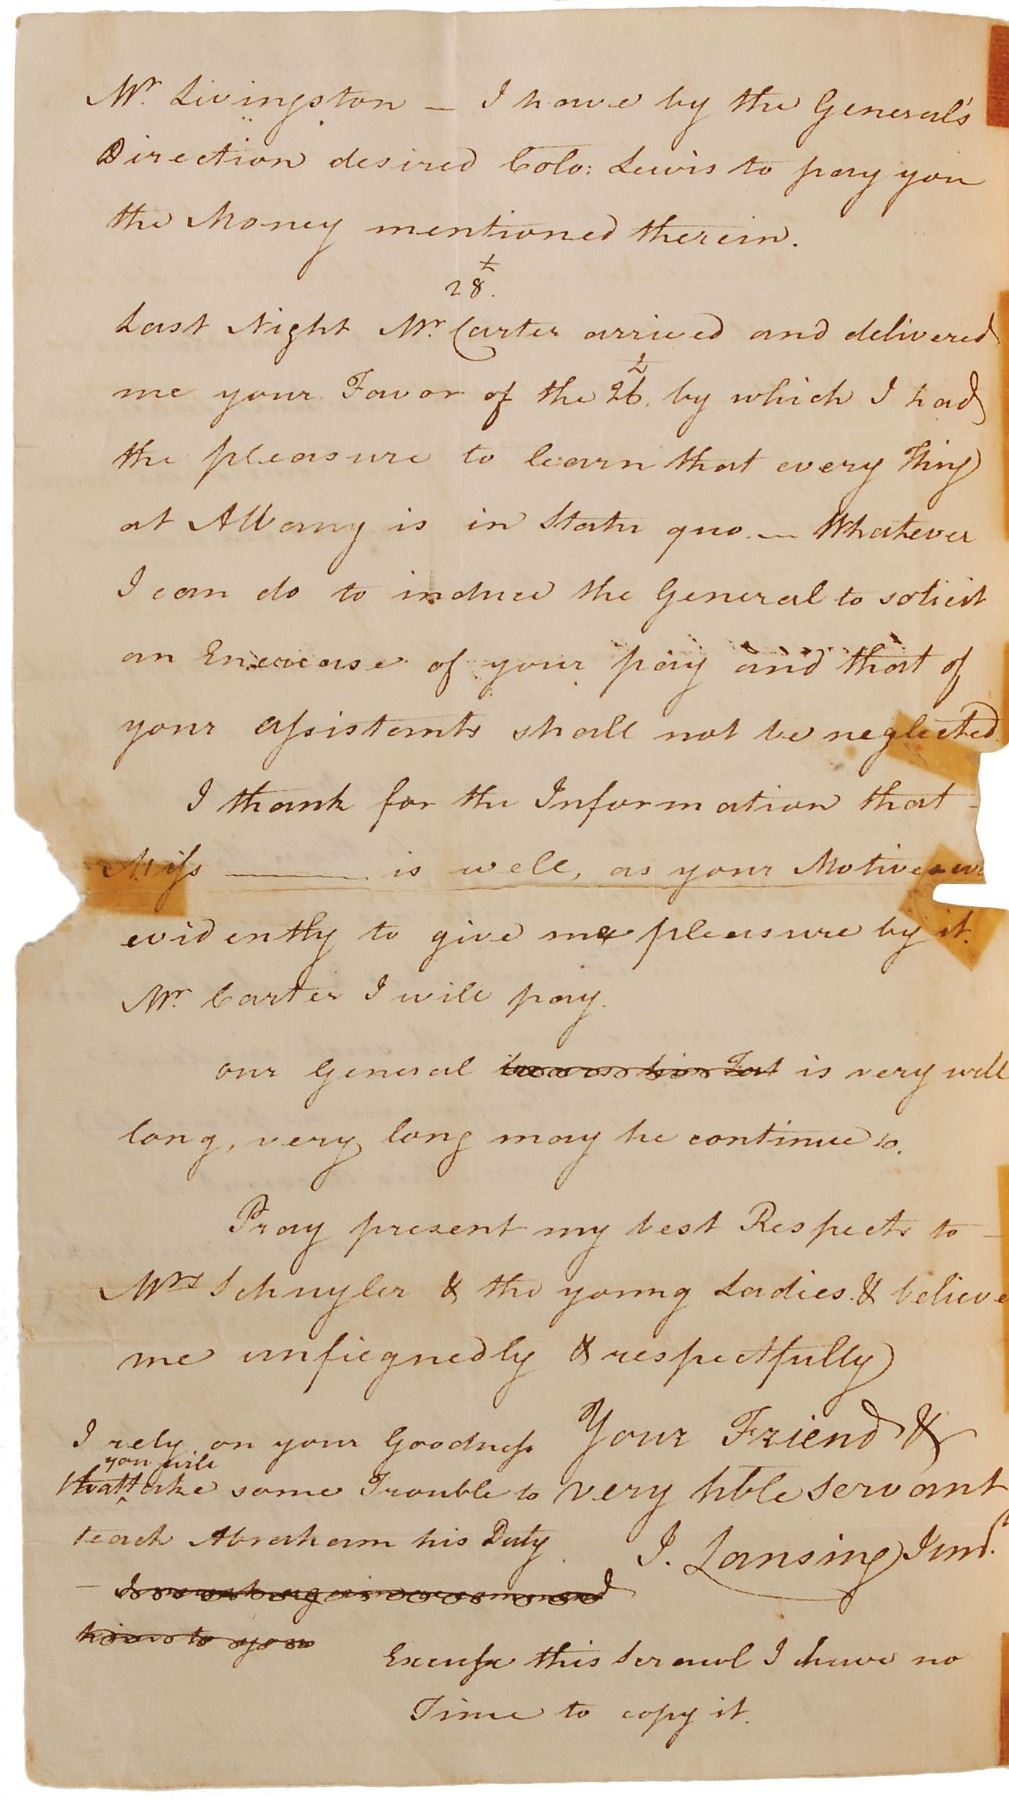 Mr. Livingston — I have by the General's
Direction desired Colo: Lewis to pay you
the Money mentioned therein.
28t.
Last Night Mr. Carter arrived and delivered
me your Favor of the 26t. by which I had
the pleasure to learn that every Thing
at Albany is in Statu quo. — Whatever
I can do to induce the General to solicit
an Encrease of your pay and that of
your assistants shall not be neglected
I thank for the Information that -
Miss ——— is well, as your Motives were
evidently to give me pleasure by it.
Mr. Carter I will pay.
our General is very well
long, very long may he continue so.
Pray present my best Respects to —
Mrs Schuyler & the young Ladies. & believe
me unfiegnedly & respectfully
Your Friend &
very hble servant
J. Lansing Junr.
I rely on your Goodness
you will
that take some Trouble to
teach Abraham his Duty.
Excuse this Scrawl I have no
Time to copy it.